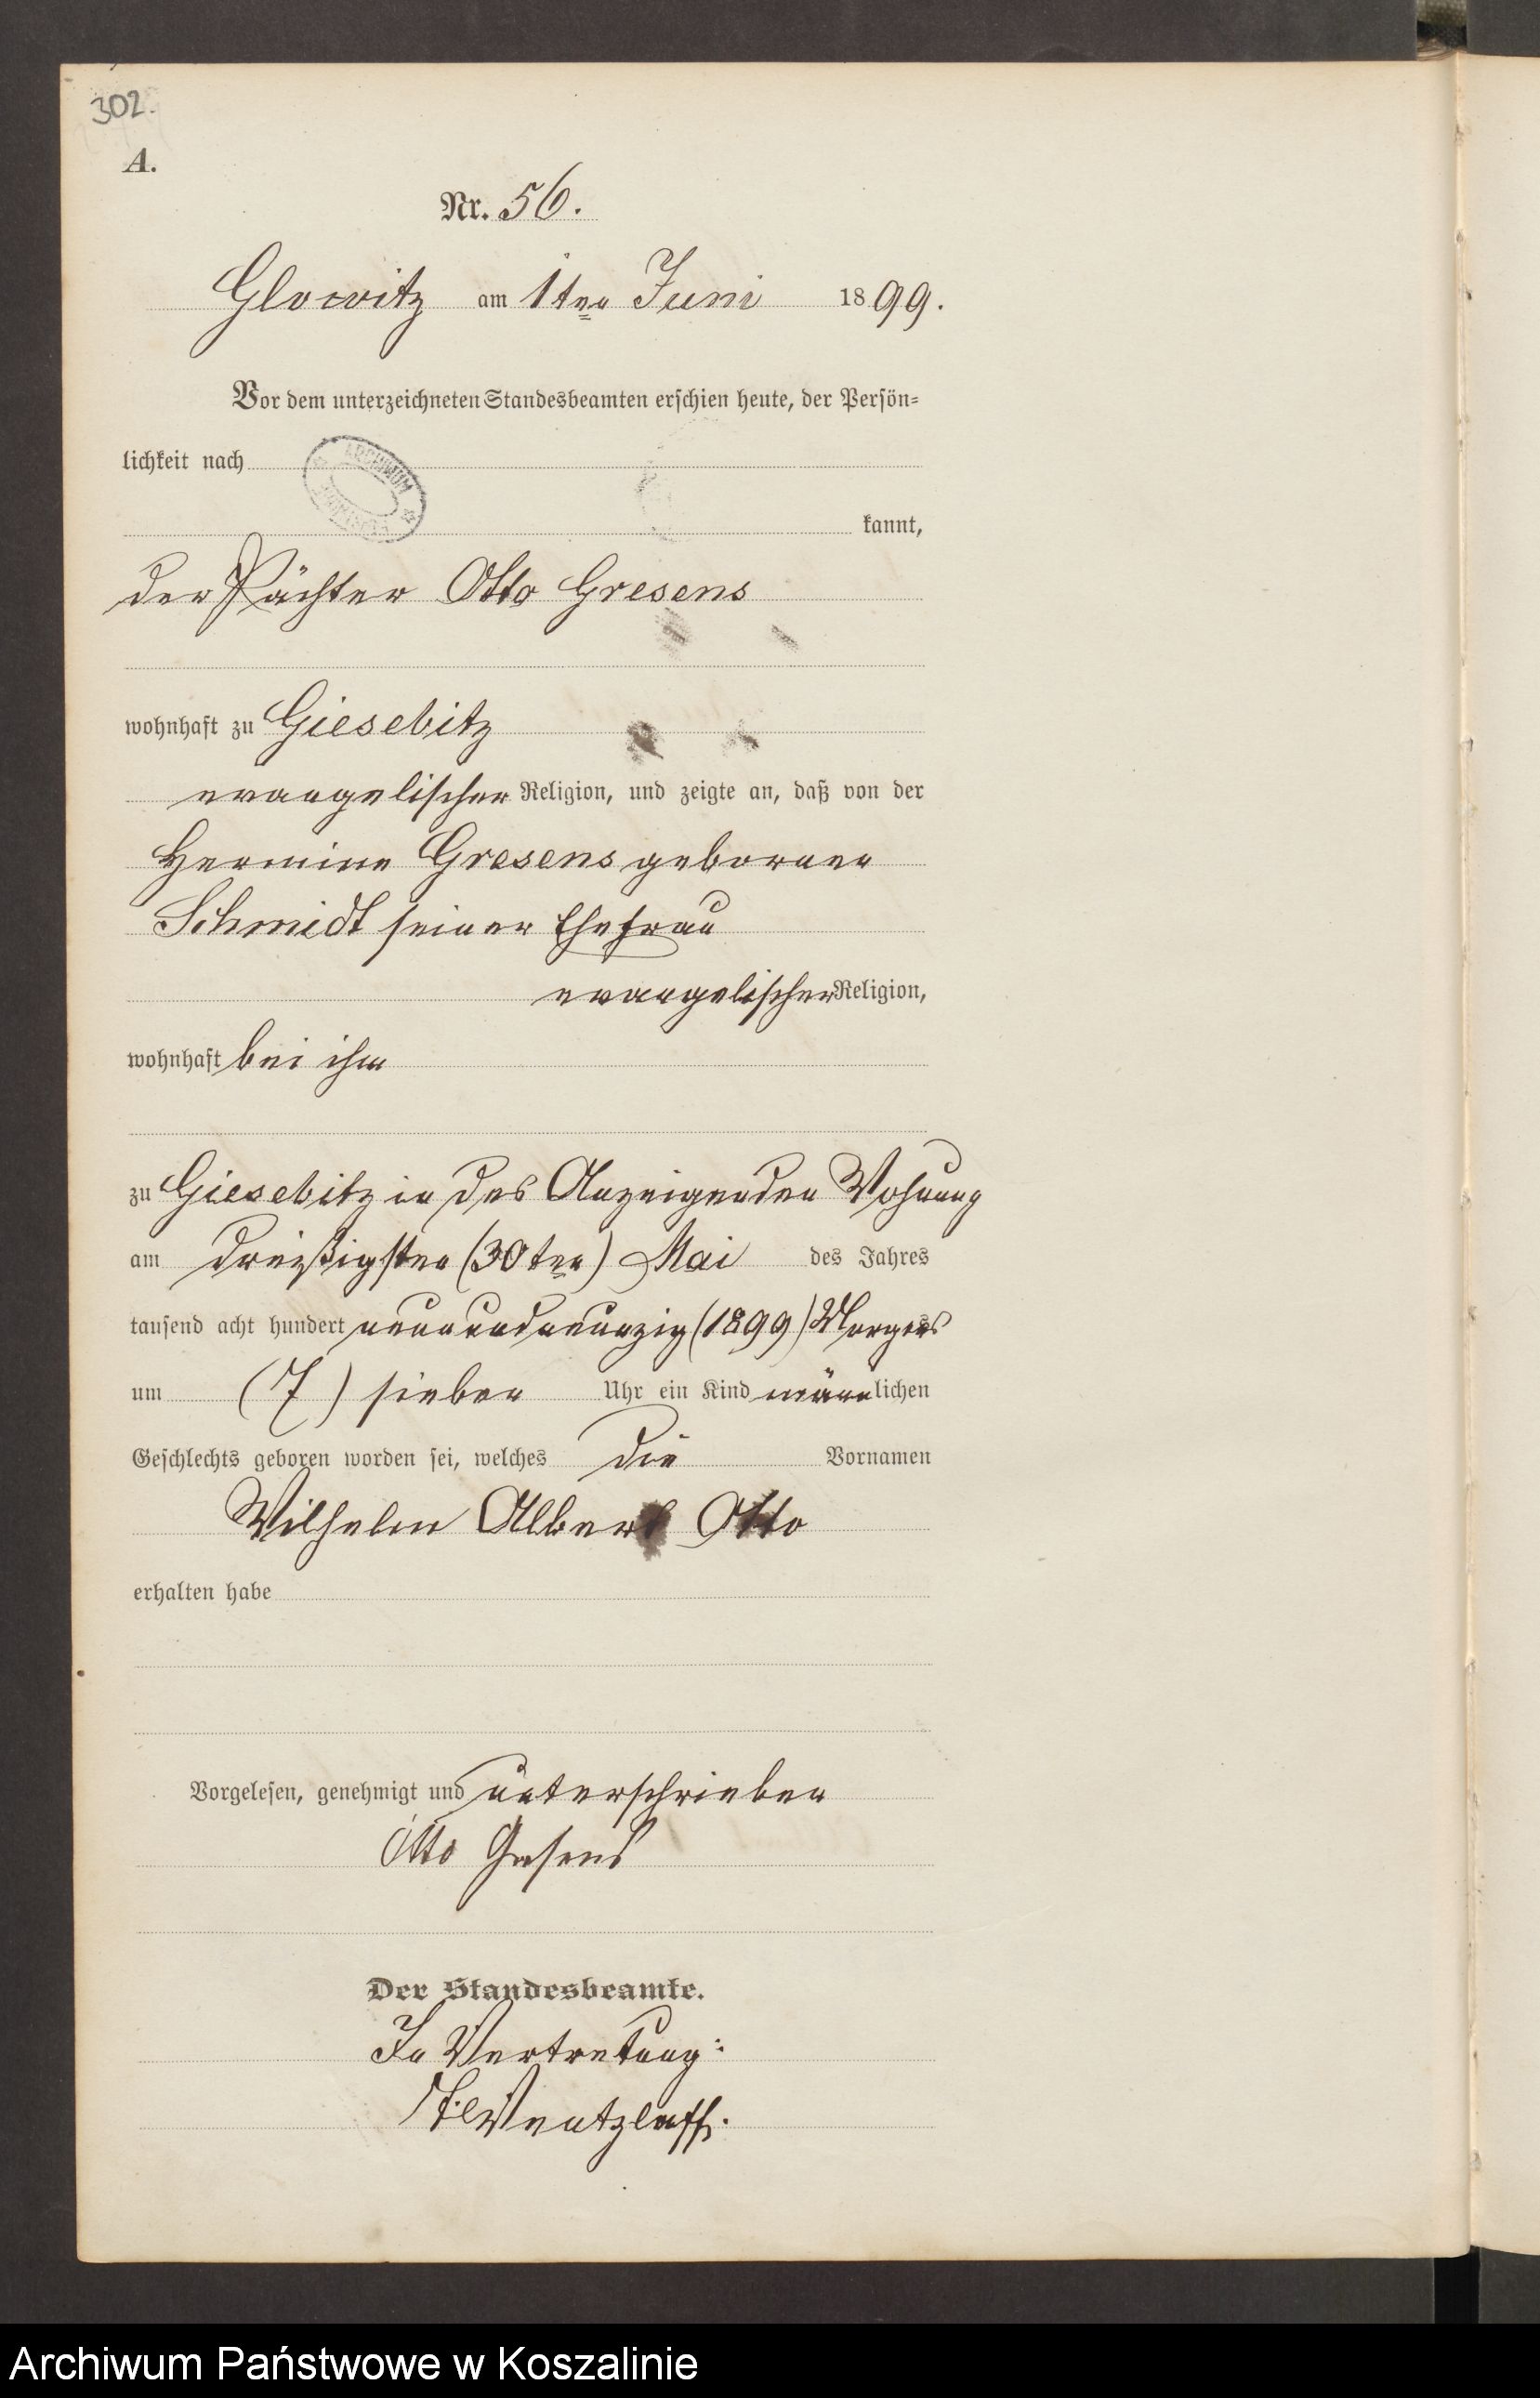 302.
A.
Nr. 56.
Glowitz am 1ten Juni 1899.
Vor dem unterzeichneten Standesbeamten erschien heute, der Persön=
lichkeit nach
ARCHIWUM
kannt,
der Pächter Otto Gresens
wohnhaft zu Giesebitz
evangelischer Religion, und zeigte an, daß von der
Hermine Gresens geborenen
Schmidt seiner Ehefrau
evangelischer Religion,
wohnhaft bei ihm
zu Giesebitz in des Anzeigenden Wohnung
am dreißigsten (30ten) Mai des Jahres
tausend acht hundert neunundneunzig (1899) Morgens
um (7) sieben Uhr ein Kind männlichen
Geschlechts geboren worden sei, welches die Vornamen
Wilhelm Albert Otto
erhalten habe
Vorgelesen, genehmigt und unterschrieben
Otto Gresens
Der Standesbeamte.
In Vertretung:
Wentzlaff.
Archiwum Państwowe w Koszalinie